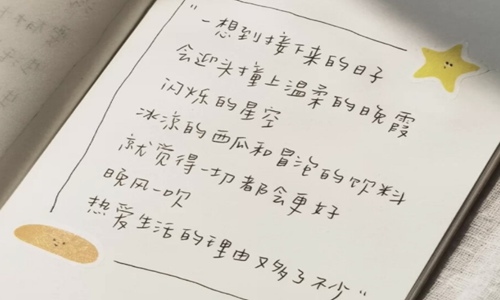 “一想到接下来的日子
会迎头撞上温柔的晚霞
闪烁的星空
冰凉的西瓜和冒泡的饮料
就觉得一切都会更好
晚风一吹
热爱生活的理由又多了不少”